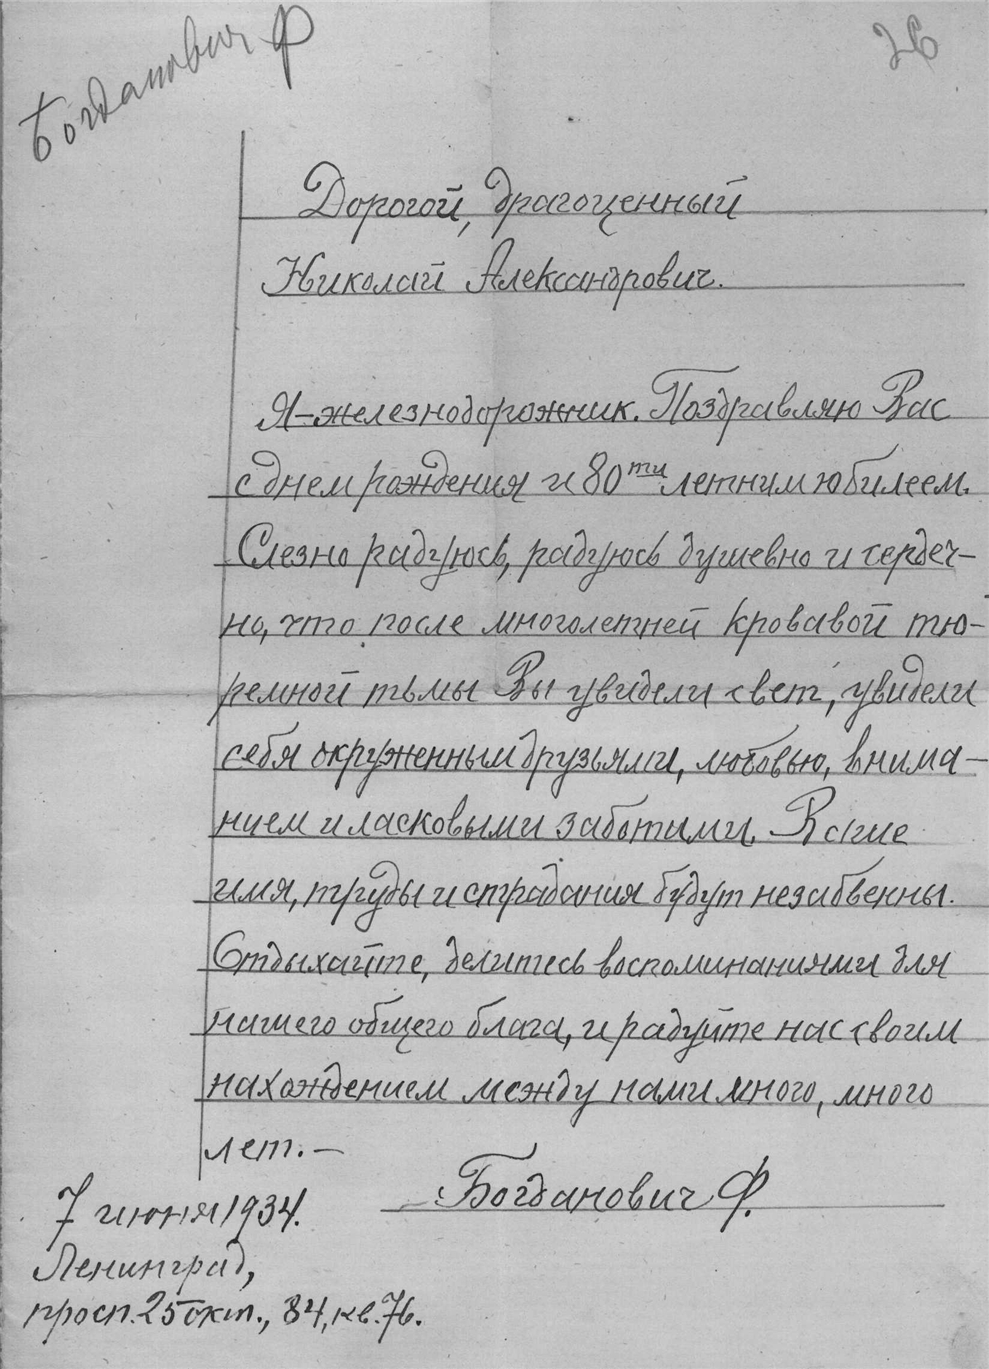 Богданович Ф
26
Дорогой, драгоценный
Николай Александрович.
Я-железнодорожник. Поздравляю Вас
с днем рождения и 80ти летним юбилеем.
Слезно радуюсь, радуюсь душевно и сердеч-
но, что после многолетней кровавой тю-
ремной тьмы Вы увидели свет, увидели
себя окруженным друзьями, любовью, внима-
нием и ласковыми заботами. Ваше
имя, труды и страдания будут незабвенны.
Отдыхайте, делитесь воспоминаниями для
нашего общего блага, и радуйте нас своим
нахождением между нами много, много
лет.—
Богданович Ф.
7 июня 1934.
Ленинград,
просп. 25 окт., 84, кв. 76.